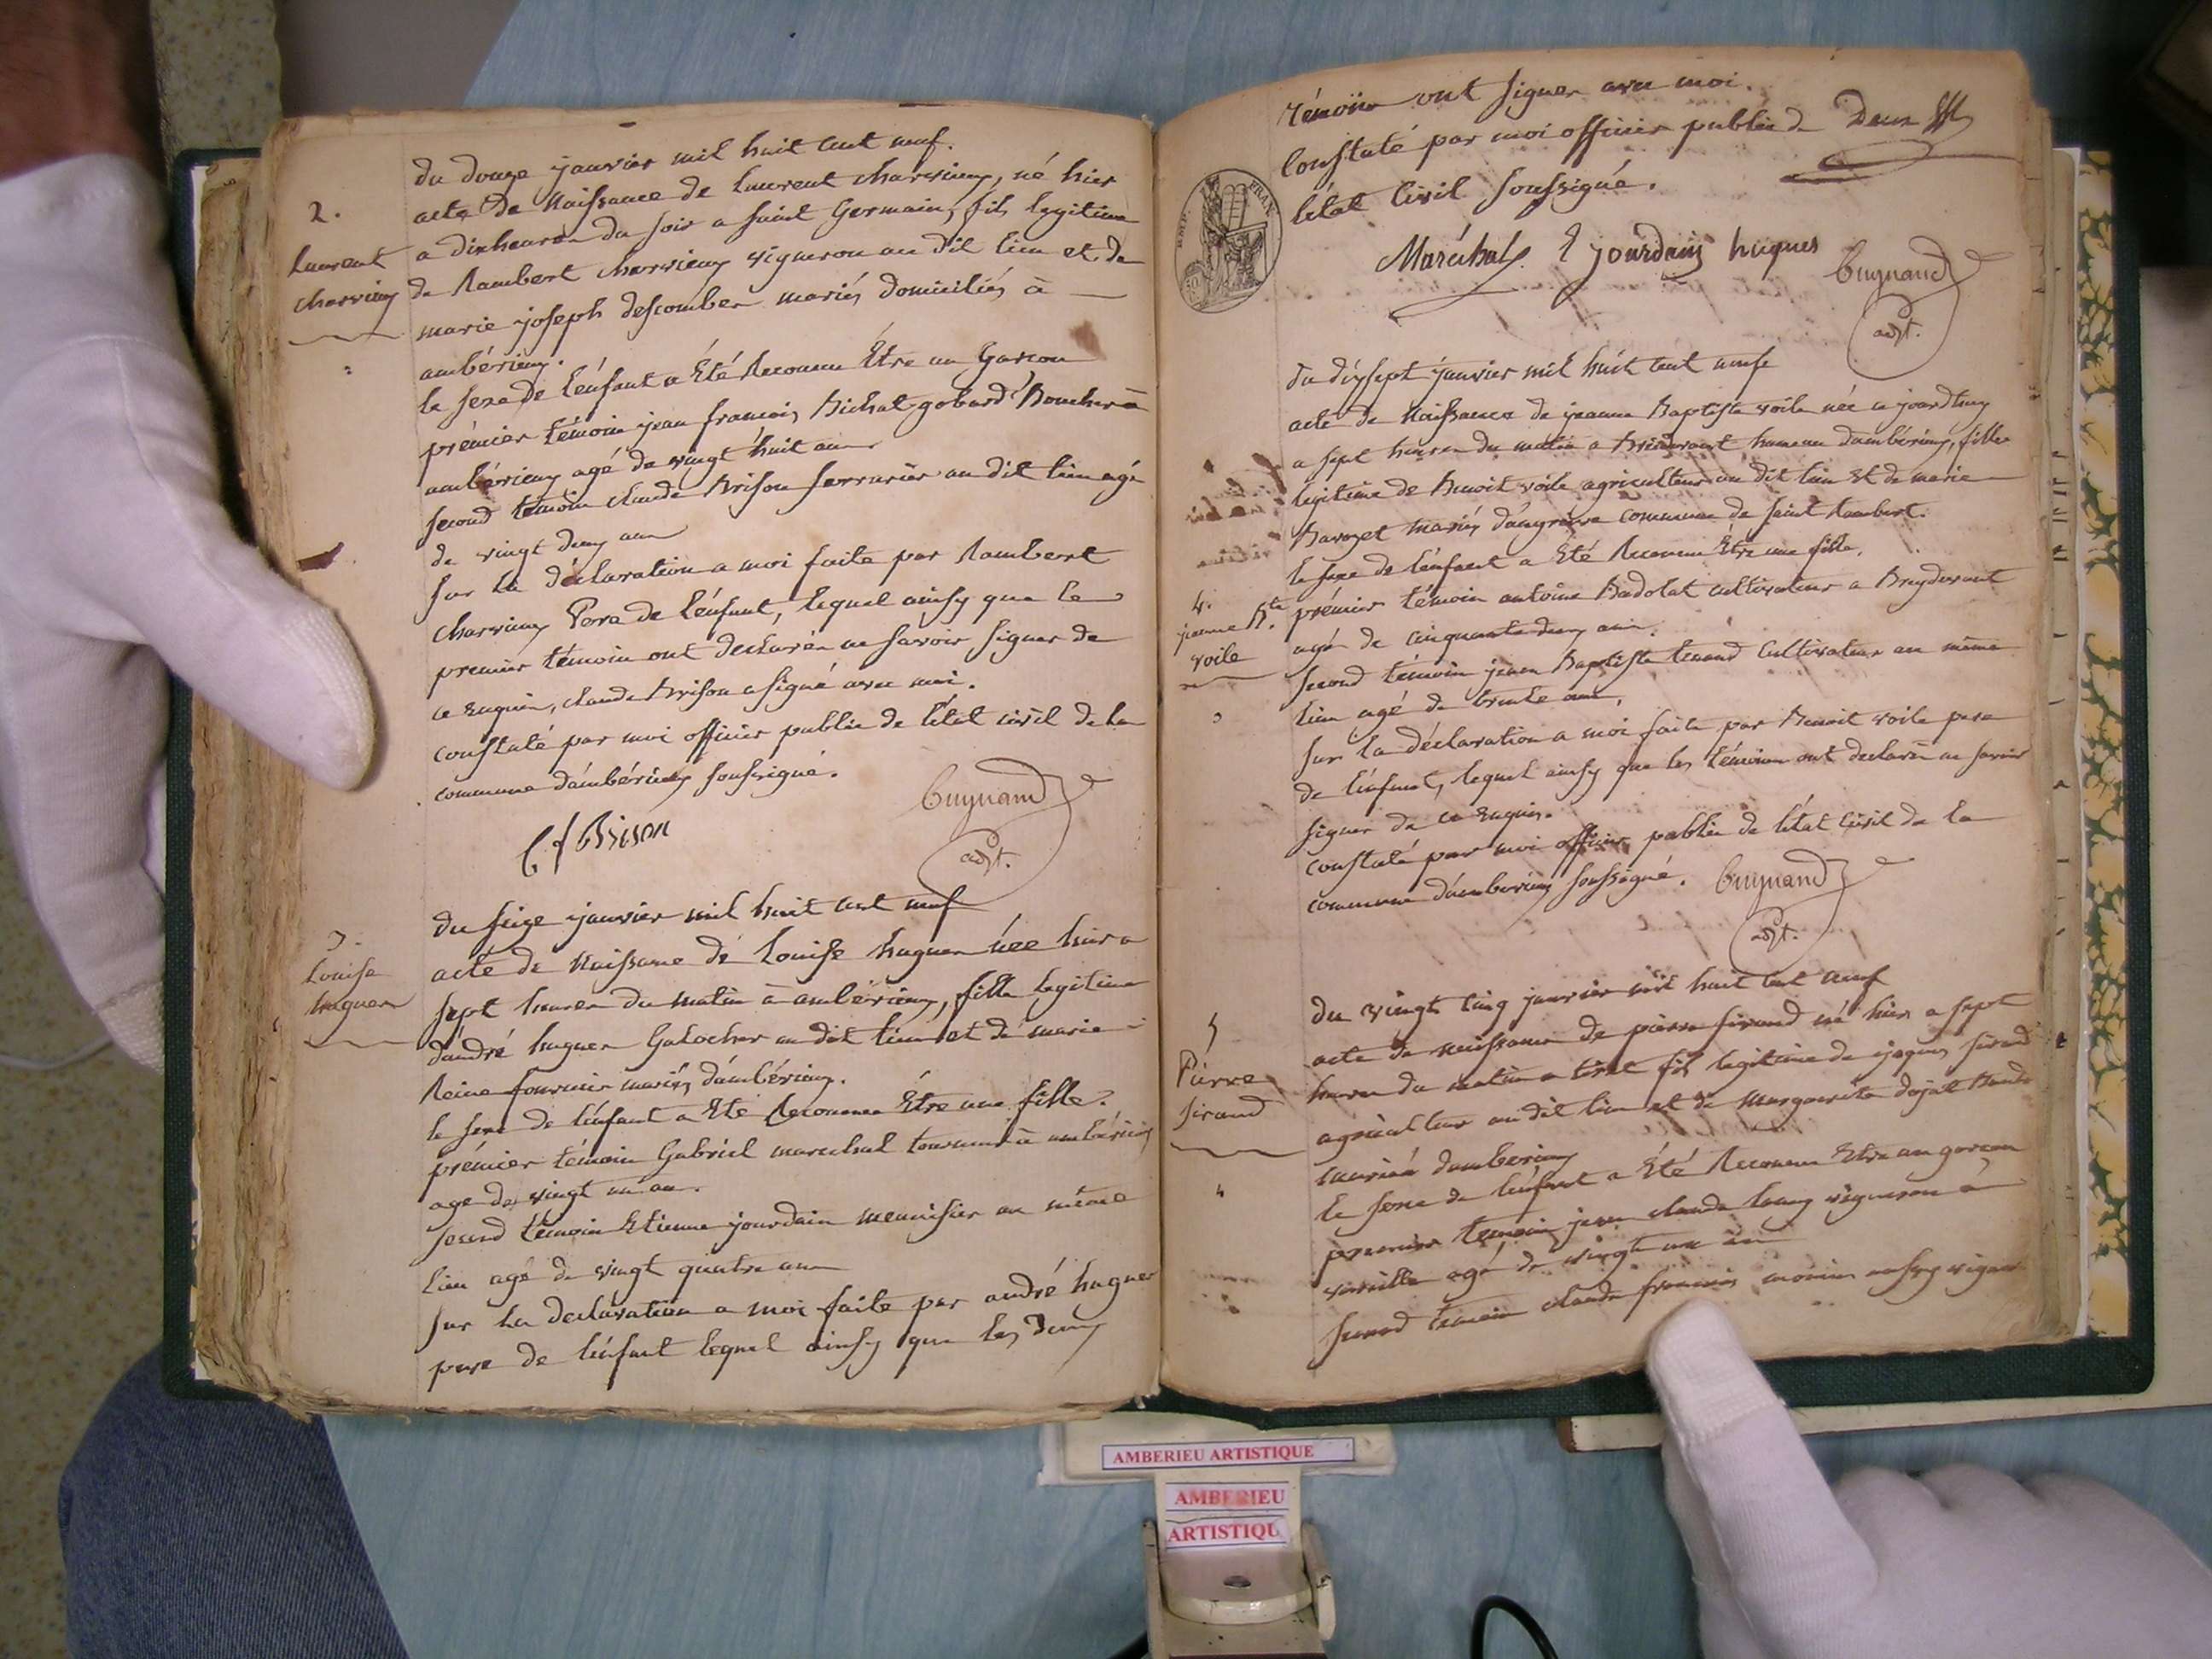 2.
Laurent
charvieux
du douze janvier mil huit cent neuf.
acte de Naissance de Laurent charvieux, né hier
a dix heures du soir a saint Germain, fils legitime
de Rambert charvieux vigneron au dit lieu et de
marie joseph descombes mariés domiciliés à
ambérieux.
le sexe de l'énfant a Été Reconnu Être un Garcon
prémier témoin jean francois Bichat gobard Boucher à
ambérieux agé de vingt huit ans
second témoin claude Brison serrurier au dit lieu agé
de vingt deux ans
sur la déclaration a moi faite par Rambert
charvieux Pere de l'énfant, lequel ainsy que le
premier témoin ont declarés ne savoir signer de
ce Enquis, claude Brison a signé avec moi.
constaté par moi officier public de l'état civil de la
commune d'ambérieux soussigné.
Cf Brison
Cuynand
adjt.
3.
Louise
hugues
du seize janvier mil huit cent neuf
acte de Naissance de Louise hugues née hier a
sept heures du matin à ambérieux, fille legitime
d'andré hugues Galocher au dit lieu et de marie
Reine fournier mariés d'ambérieux.
le sexe de l'énfant a Eté Reconnu Être une fille.
prémier témoin Gabriel marechal tourneur à ambérieux
age de vingt un an.
second témoin Etienne jourdain menuisier au même
lieu agé de vingt quatre ans
sur la declaration a moi faite par andré hugues
pere de l'énfant lequel ainsy que les deux
témoins ont signer avec moi.
Constaté par moi officier public de
l'état Civil soussigné.
FRAN.
Maréchal. E jourdain hugues
Cuynand
adjt.
4.
jeanne Bte
voile
du dixsept janvier mil huit cent neuf
acte de Naissance de jeanne Baptiste voile née a jourdhuy
a sept heures du matin a hameau d'ambérieux, fille
legitime de Benoit voile agriculteur au dit lieu et de marie
mariés commune de saint Rambert.
le sexe de l'énfant a Eté Reconnu Être une fille.
prémier témoin antoine Badolat cultivateur a
agé de cinquante deux ans.
second témoin jean Baptiste tenand Cultivateur au même
lieu agé de trente ans.
sur la déclaration a moi faite par Benoit voile pere
de l'énfant, lequel ainsy que les témoins ont declarés ne savoir
signer de ce Enquis.
constaté par moi officier public de l'état Civil de la
commune d'ambérieux soussigné.
Cuynand
adjt.
5
Pierre
sirand
du vingt cinq janvier mil huit cent neuf
acte de naissance de pierre sirand né hier a sept
heures du matin a tiret fils legitime de jaques sirand
agriculteur au dit lieu et de marguerite dojat
mariés d'ambérieux
le sexe de l'énfant a Été Reconnu Etre un garcon
premier temoin jean claude vigneron à
vareille agé de vingt un an
second témoin claude francois aussy vigneron
AMBERIEU ARTISTIQUE
AMBERIEU
ARTISTIQU